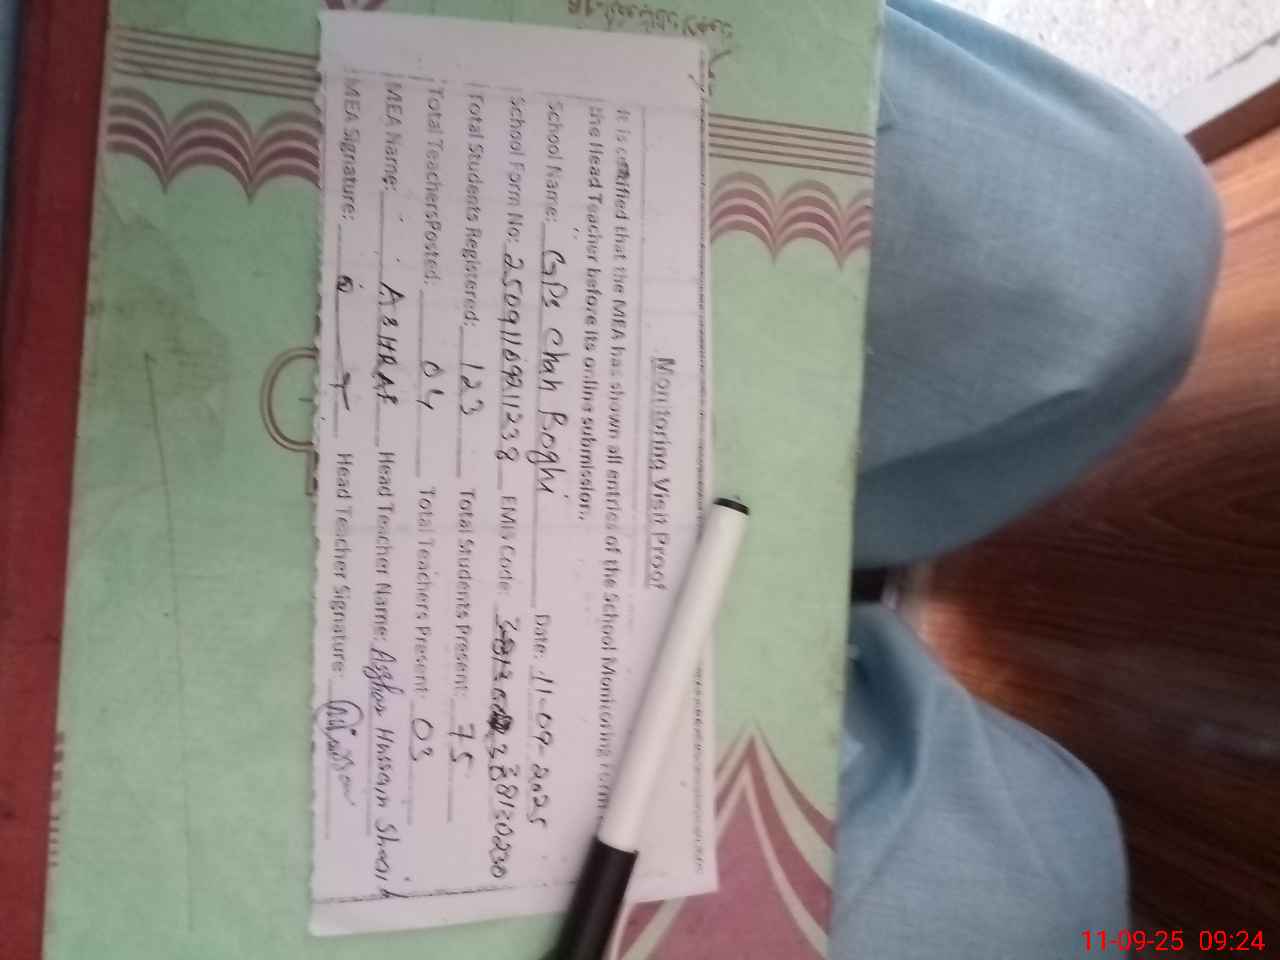 Monitoring Visit Proof
It is certified that the MEA has shown all entries of the School Monitoring Form
the Head Teacher before its online submission.
School Name: GPS Chah Roghi Date: 11-09-2025
School Form No: 25091109211238 EMIS Code: 38130230
Total Students Registered: 123 Total Students Present: 75
Total TeachersPosted: 04 Total Teachers Present: 03
MEA Name: ASHRAF Head Teacher Name: Asghar Hussain Sharif
MEA Signature: Head Teacher Signature:
11-09-25 09:24